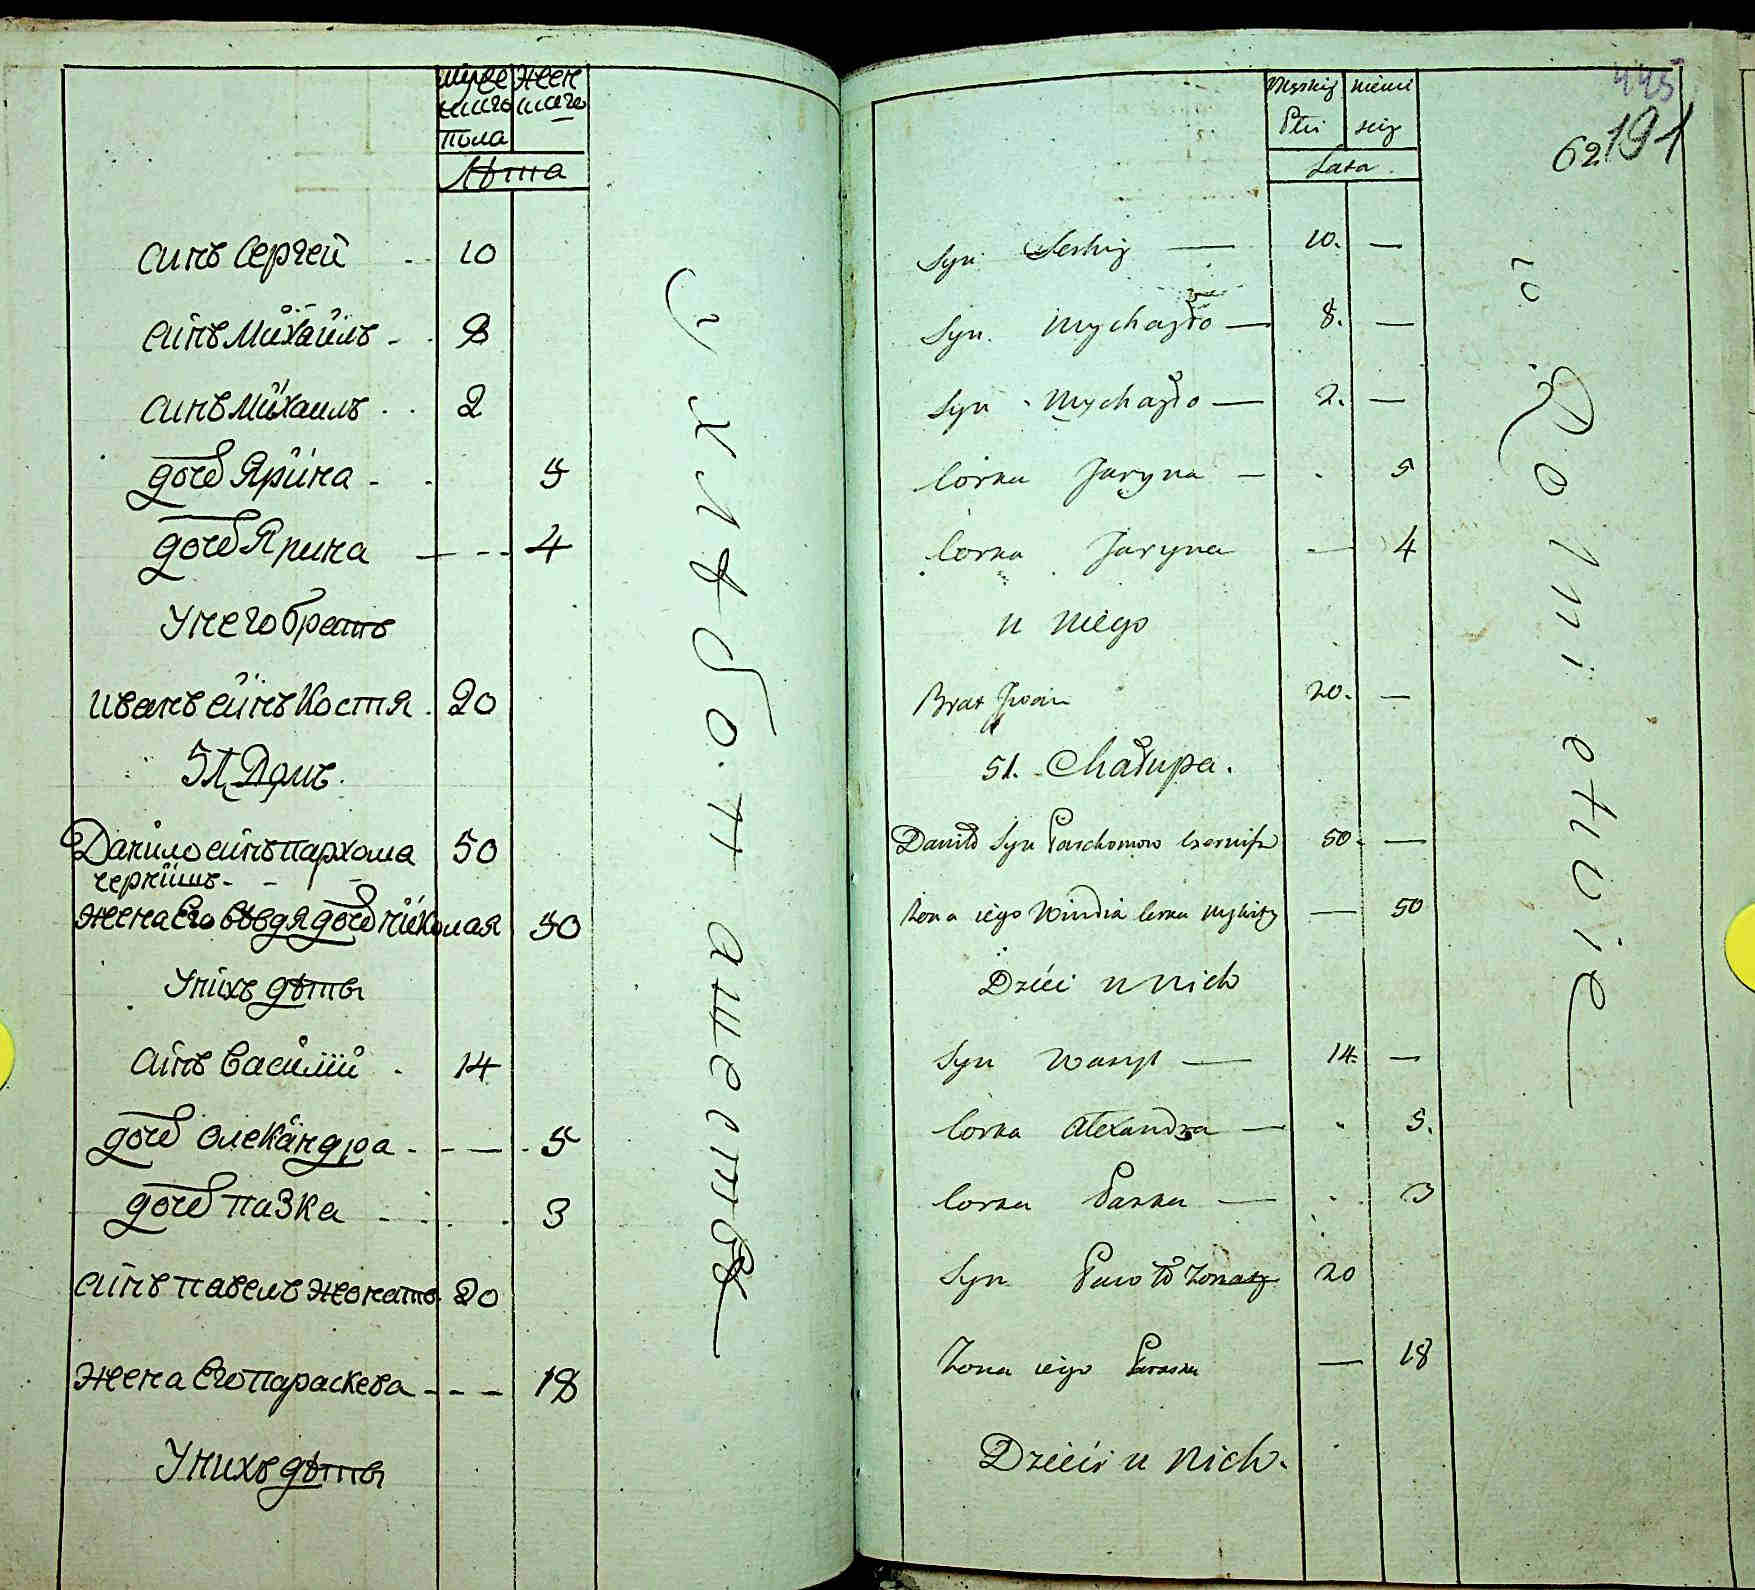 мужескаго пола
женскаго
Лѣта
синъ Сергей 10
синъ Михаилъ 8
синъ Михаилъ 2
дочь Ярина 5
дочь Ярина 4
У него братъ
иванъ синъ Костя 20
51 Домъ.
Данило синъ пархома 50
чернишъ
жена Его Евдя дочь николая 50
У нихъ дѣти
синъ Василий 14
дочь Олександра 5
дочь пазка 3
синъ павелъ женатъ 20
жена Его параскева 18
У нихъ дѣти
у хлѣбопашествѣ
Męskiej Płci
Lata
445
62. 191
Syn Serhiy 10. —
Syn Mychayło 8. —
Syn Mychayło 2. —
Corka Jaryna 5
Corka Jaryna 4
u niego
Brat Jwan 20. —
51. Chałupa.
Daniło Syn Parchomow 50. —
Zona iego corka 50
Dzieci u nich
Syn Wasyl 14. —
Corka Alexandra 5.
Corka Paska 3
Syn Pawło Zonaty 20
Zona iego Paraska 18
Dzieci u nich.
Rolnictwie